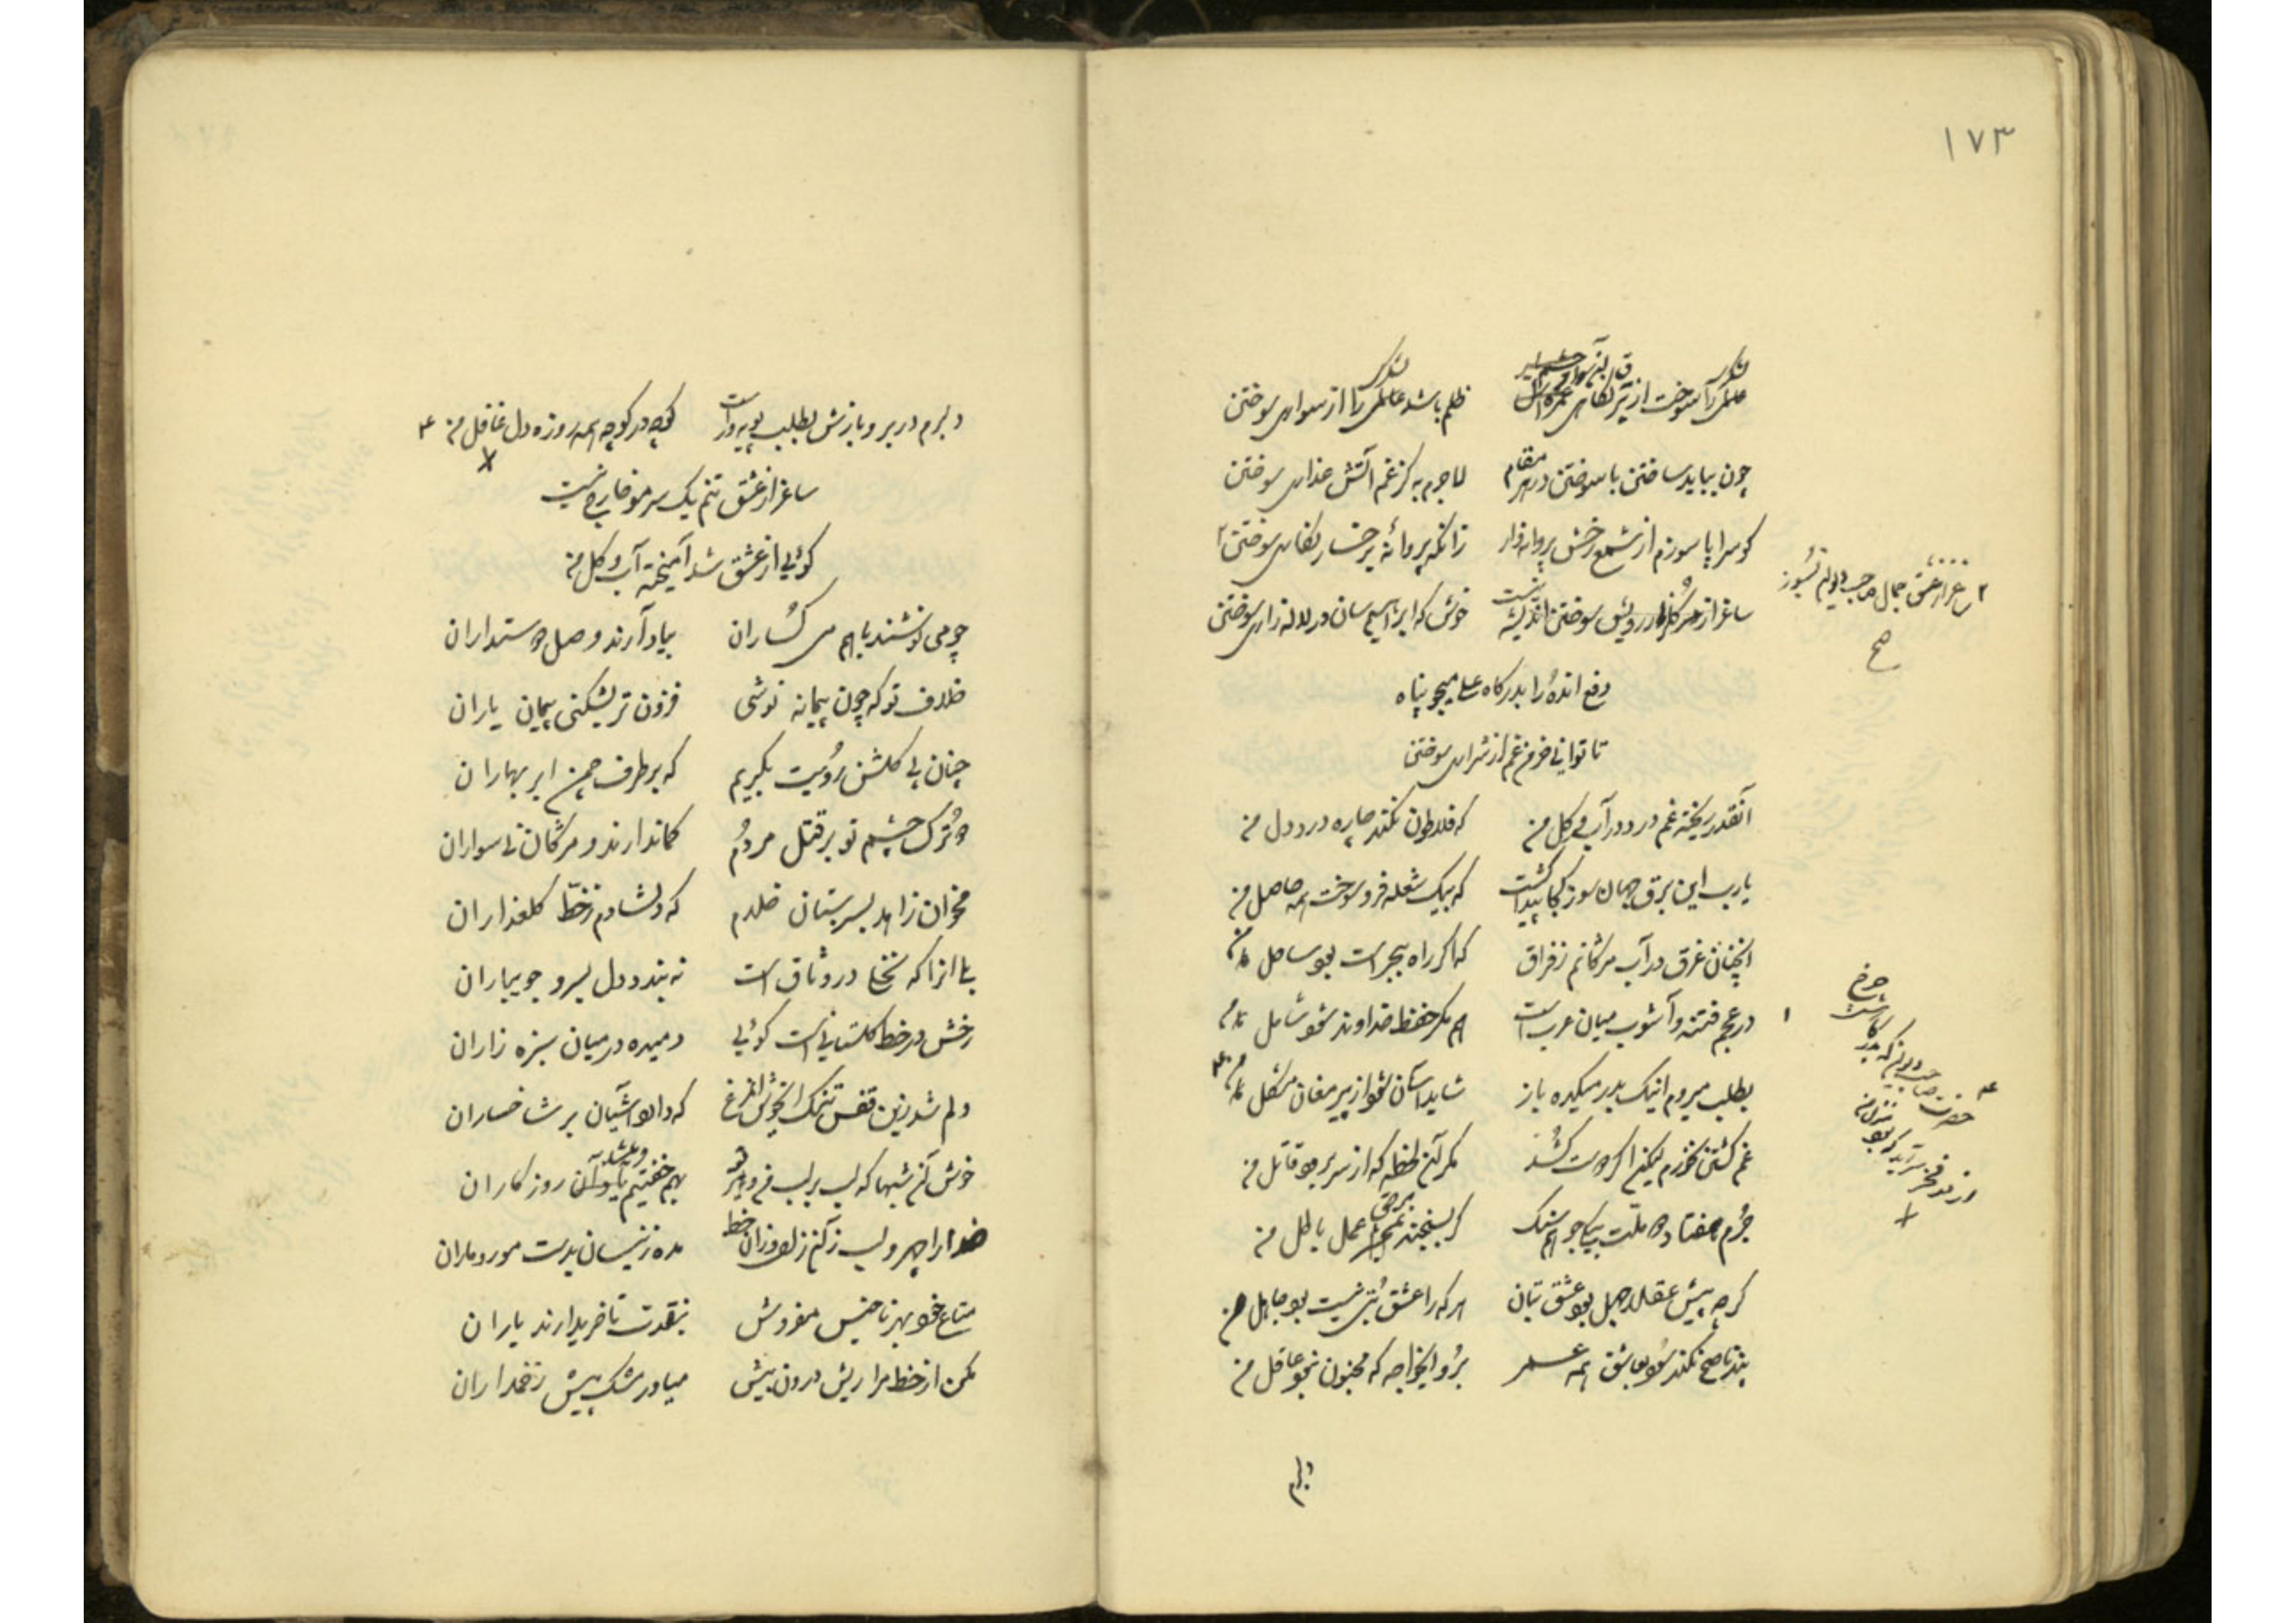 ۱۷۳
عالمی را سوخت از تیر نگاهی ظلم باشد عالمی را از سواری سوختن
چون بباید ساختن با سوختن در هر مقام لاجرم به کز غم آتش عذاری سوختن
کو سراپا سوزم از شمع رخش پروانه وار زانکه پروانه بر خسار نگاری سوختن ۲
ساغر از رویش سوختن اندیشه نیست خوش که ابراهیم سان در لاله زاری سوختن
۲ ساغر از عشق جمال
صح
دفع انده را بدرگاه علی میجو پناه
تا توانی خرمن غم از شراری سوختن
آنقدر ریخته غم درد در آب و گل من که فلاطون نکند چاره درد دل من
یارب این برق جهان سوز کجا پیدا گشت که بیک شعله فرو سوخت همه حاصل من
آنچنان غرق در آب مژگانم ز فراق که اگر راه ببحر است بود ساحل من
۱ در عجم فتنه و آشوب میان عرب است هم مگر حفظ خداوند شود شامل من
بطلب میروم اینک بدر میکده باز شاید آسان شود از پیر مغان مشکل من ۳
غم کشتن نخورم لیکنم اگر دوست کشد مگر آن لحظه که از سر برود قاتل من
جرم هفتاد و دو ملت بیکی جو هم سنگ گر بسنجند عمل باطل من
گرچه پیش عقلا جهل بود عشق بتان هر که را عشق بتی نیست بود جاهل من
پند ناصح نکند سود بعاشق همه عمر برو ایخواجه که مجنون نشود عاقل من
دلبرم
دلبرم در بر و بازش بطلب پویه ور است کوچه در کوچه همه روزه دل غافل من ۴
ساغر از عشق تنم یک سر مو خارج نیست
گوئی از عشق شد آمیخته آب و گل من
چو می نوشند باهم می گساران بیاد آرند وصل دوستداران
خلاف تو که چون پیمانه نوشی فزون تر بشکنی پیمان یاران
چنان بی گلشن رویت بگریم که بر طرف چمن ابر بهاران
دو ترک چشم تو بر قتل مردم کماندارند و مژگان نی سواران
مخوان زاهد بسر بستان خلدم که دلشادم ز خط گلعذاران
بلی انرا که نخلی در وثاق است نه بندد دل بسرو جویباران
رخش در خط گلستانی است گوئی دمیده در میان سبزه زاران
دلم شد زین قفس تنگ ایخوش انمرغ که دارد آشیان بر شاخساران
خوش آن شبها که لب بر لب بهم خفتیم یاد آن روزگاران
خدا را چهر و لب زآن زلف وزان خط مده زینسان بدست مور و ماران
متاع خود بهر ناجنس مفروش بنقدت تا خریدارند یاران
مکن از خط مرا ریش درون بیش میاور مشک پیش زخمداران